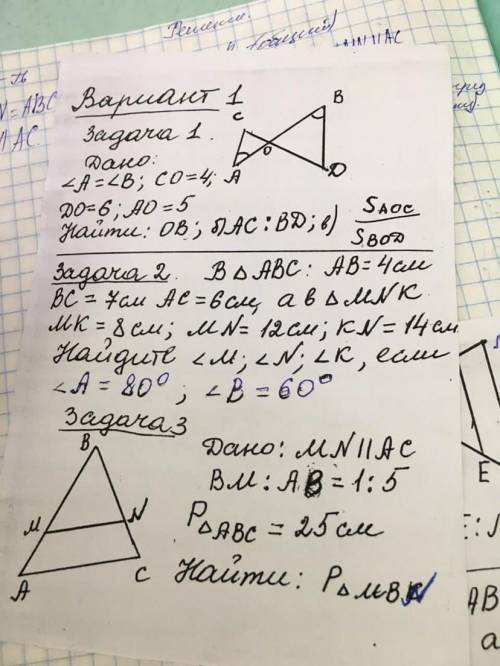 Решении
AC
= ABC
AC
Вариант 1
Задача 1.
Дано:
∠A=∠B; CO=4;
DO=6; AO=5
Найти: OB; б) AC:BD; в) S AOC / S BOD
C
B
O
A
D
Задача 2. В △ ABC: AB=4см
BC=7см AC=6см, а в △MNK
MK=8см; MN=12см; KN=14см
Найдите ∠M; ∠N; ∠K, если
∠A=80°; ∠B=60°
Задача 3
B
M
N
A
C
Дано: MN||AC
BM:AB=1:5
P△ABC=25см
Найти: P△MBN
E
AB
a